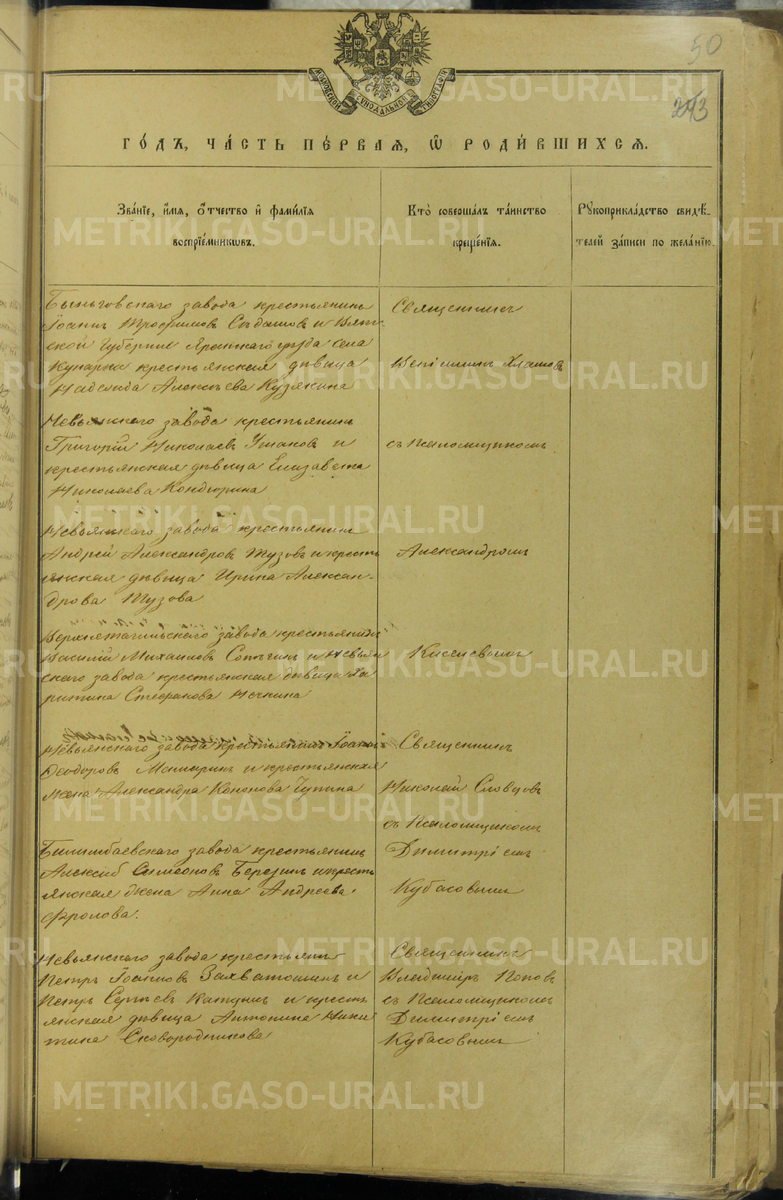 50
243
МОСКОВСКОЙ СѴНОДАЛЬНОЙ ТИПОГРАФІИ
ГО́ДЪ, ЧА́СТЬ ПЕ́РВАЯ, Ѡ РОДИ́ВШИХСЯ.
Зва́ніе, и́мя, о́тчество и фами́лія
воспріе́мниковъ.
Кто̀ соверша́лъ та́инство
креще́нія.
Рукоприкла́дство свидѣ́-
телей за́писи по жела́нію.
Быньговскаго завода крестьянинъ
Іоаннъ Трофимовъ Сѣдышовъ и Вят-
ской губерніи Яранскаго уѣзда села
Кукарки крестьянская дѣвица
Надежда Алексѣева Кузякина
Священникъ
Веніаминъ
Невьянскаго завода крестьянинъ
Григорій Николаевъ Ушаковъ и
крестьянская дѣвица Елизавета
Николаева Кондюрина
съ псаломщикомъ
Невьянскаго завода крестьянинъ
Андрей Александровъ Тузовъ и кресть
янская дѣвица Ирина Алексан-
дрова Тузова
Александромъ
Верхнетагильскаго завода крестьянинъ
Василій Михаиловъ и Невьян
скаго завода крестьянская дѣвица Ха
ритина Стефанова
Киселевымъ
Невьянскаго завода крестьянинъ Іоаннъ
Ѳеодоровъ и крестьянская
жена Александра Кононова Чупина
Священникъ
Николай Словцовъ
съ псаломщикомъ
Димитріемъ
Кубасовымъ
Билимбаевскаго завода крестьянинъ
Алексѣй Симеоновъ Березинъ и кресть
янская жена Анна Андреева
Фролова.
Невьянскаго завода крестьяне
Петръ Іоанновъ Захватошинъ и
Петръ Сергѣевъ и кресть
янская дѣвица Антонина Ники
тина Сковородникова
Священникъ
Владиміръ Поповъ
съ псаломщикомъ
Димитріемъ
Кубасовымъ
METRIKI.GASO-URAL.RU